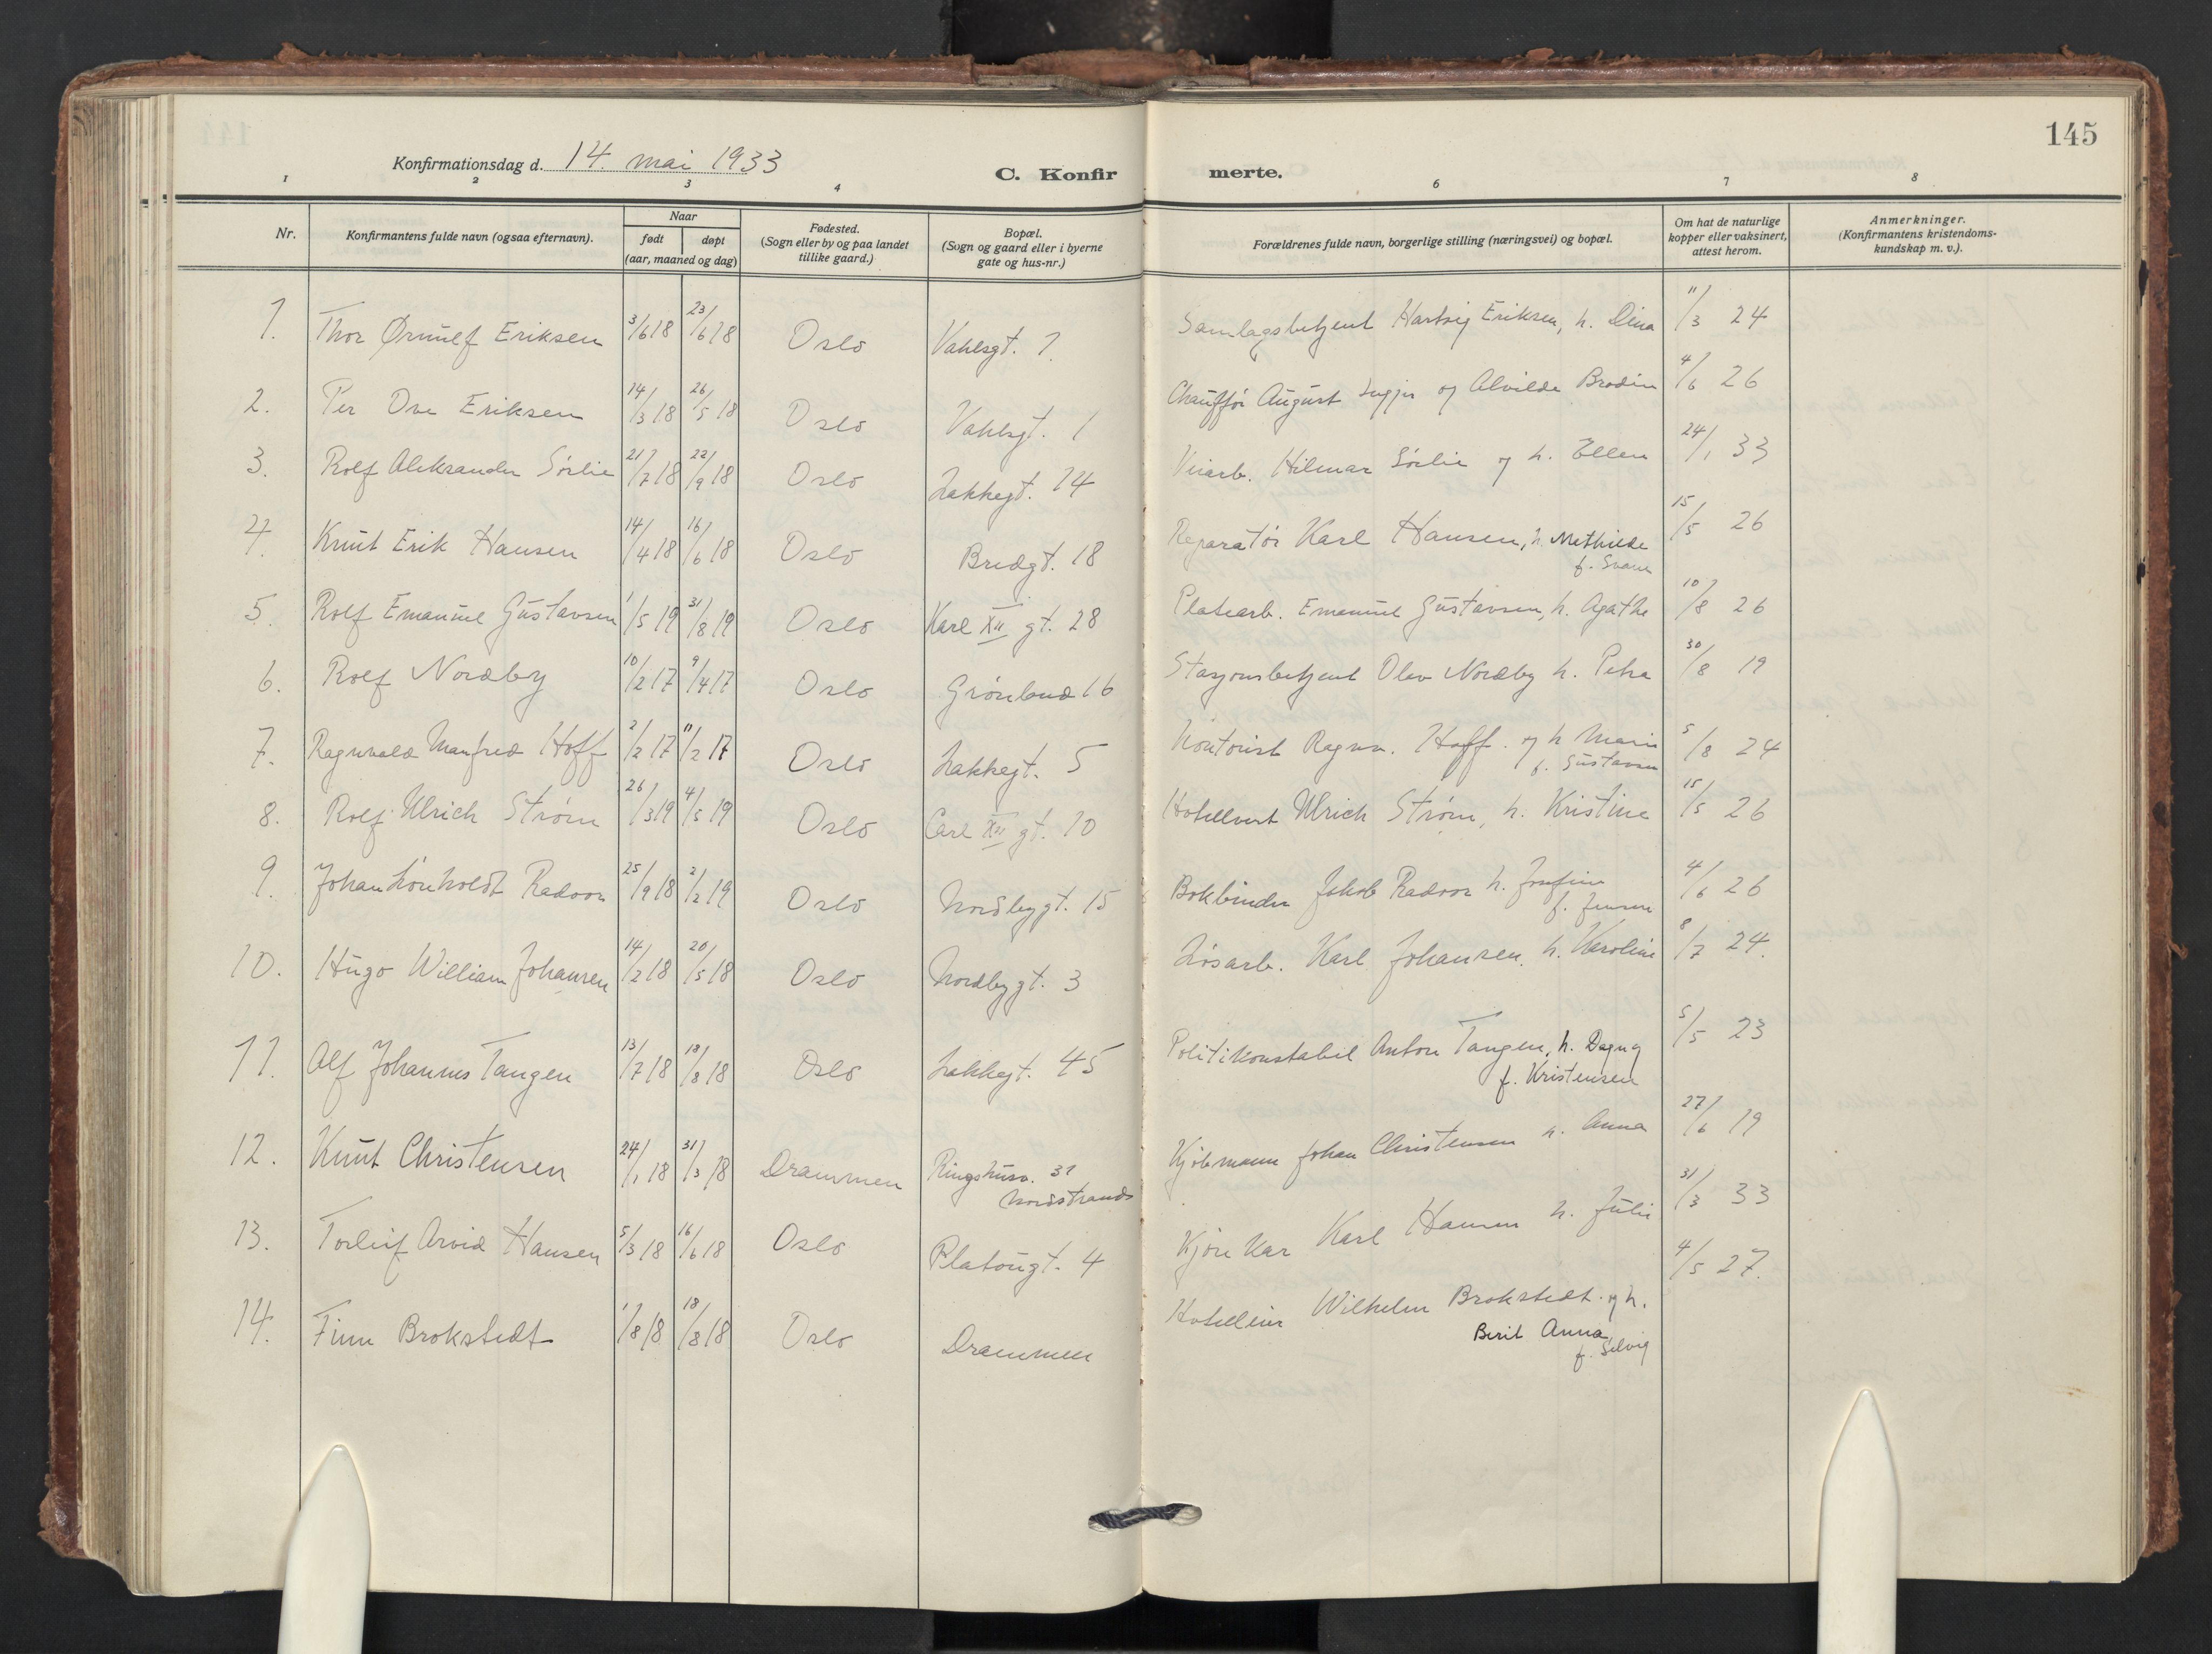 145
Konfirmationsdag d. 14. mai 1933
C. Konfir merte.
1 2 3 4 6 7 8
Nr. Konfirmantens fulde navn (ogsaa efternavn). Naar født døpt (aar, maaned og dag) Fødested. (Sogn eller by og paa landet tillike gaard.) Bopæl. (Sogn og gaard eller i byerne gate og hus-nr.) Forældrenes fulde navn, borgerlige stilling (næringsvei) og bopæl. Om hat de naturlige kopper eller vaksinert, attest herom. Anmerkninger. (Konfirmantens kristendoms-kundskap m. v.).
1. Thor Ørnulf Eriksen 3/6 18 23/6 18 Oslo Vahlsgt. 1. Samlagsbetjent Hartvig Eriksen, h. Dina 11/3 24
2. Per Ove Eriksen 14/3 18 26/5 18 Oslo Vahlsgt. 1 Chauffør August og Alvilde Brodin 4/6 26
3. Rolf Aleksander Sørlie 21/7 18 22/9 18 Oslo Lakkegt. 14 Veiarb. Hilmar Sørlie og h. Ellen 24/1 33
4. Knut Erik Hansen 14/4 18 16/6 18 Oslo Bredgt. 18 Reparatør Karl Hansen, h. Mathilde
f. Svane 15/5 26
5. Rolf Emanuel Gustavsen 1/5 19 31/8 19 Oslo Karl XII gt. 28 Platearb. Emanuel Gustavsen, h. Agathe 10/8 26
6. Rolf Nordby 10/2 17 9/4 17 Oslo Grønland 16 Stasjonsbetjent Olav Nordby h. Petra 30/8 19
7. Ragnvald Manfred Hoff 2/2 17 11/2 17 Oslo Lakkegt. 5 Kontorist Ragnv. Hoff. og h Marie
f. Gustavsen 5/8 24
8. Rolf Ulrich Strøm 26/3 19 4/5 19 Oslo Carl XII gt. 10 Hotellvert Ulrich Strøm, h. Kristine 15/5 26
9. Johan Lønholdt Radoor 25/9 18 2/2 19 Oslo Nordbygt. 15 Bokbinder Jakob Radoor h. Josefine
f. Jensen 4/6 26
10. Hugo William Johansen 14/2 18 20/5 18 Oslo Nordbygt. 3 Løsarb. Karl Johansen, h. Karoline 8/7 24.
11. Alf Johannes Tangen 13/7 18 18/8 18 Oslo Lakkegt. 45 Politikonstabel Anton Tangen, h. Dagny
f. Kristensen 5/5 23
12. Knut Christensen 24/1 18 31/3 18 Drammen Ringshusv. 31
Nordstrand Kjøbmann Johan Christensen h. Anna 27/6 19
13. Torleif Arvid Hansen 5/3 18 16/6 18 Oslo Platougt. 4 Kjørekar Karl Hansen h. Julie 31/3 33
14. Finn Brokstedt 1/8 18 18/8 18 Oslo Drammen Hotelleier Wilhelm Brokstedt. og h.
Berit Anna,
f. Selvig 4/5 27.